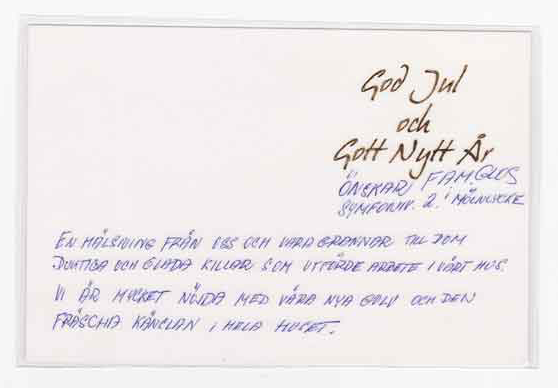 God Jul
och
Gott Nytt År
ÖNSKAR FAM. GLOS
SYMFONIV. 2. I MÖLNLYCKE
EN HÄLSNING FRÅN OSS OCH VÅRA GRANNAR TILL DOM
DUKTIGA OCH GLADA KILLAR SOM UTFÖRDE ARBETE I VÅRT HUS.
VI ÄR MYCKET NÖJDA MED VÅRA NYA GOLV OCH DEN
FRÄSCHA KÄNSLAN I HELA HUSET.